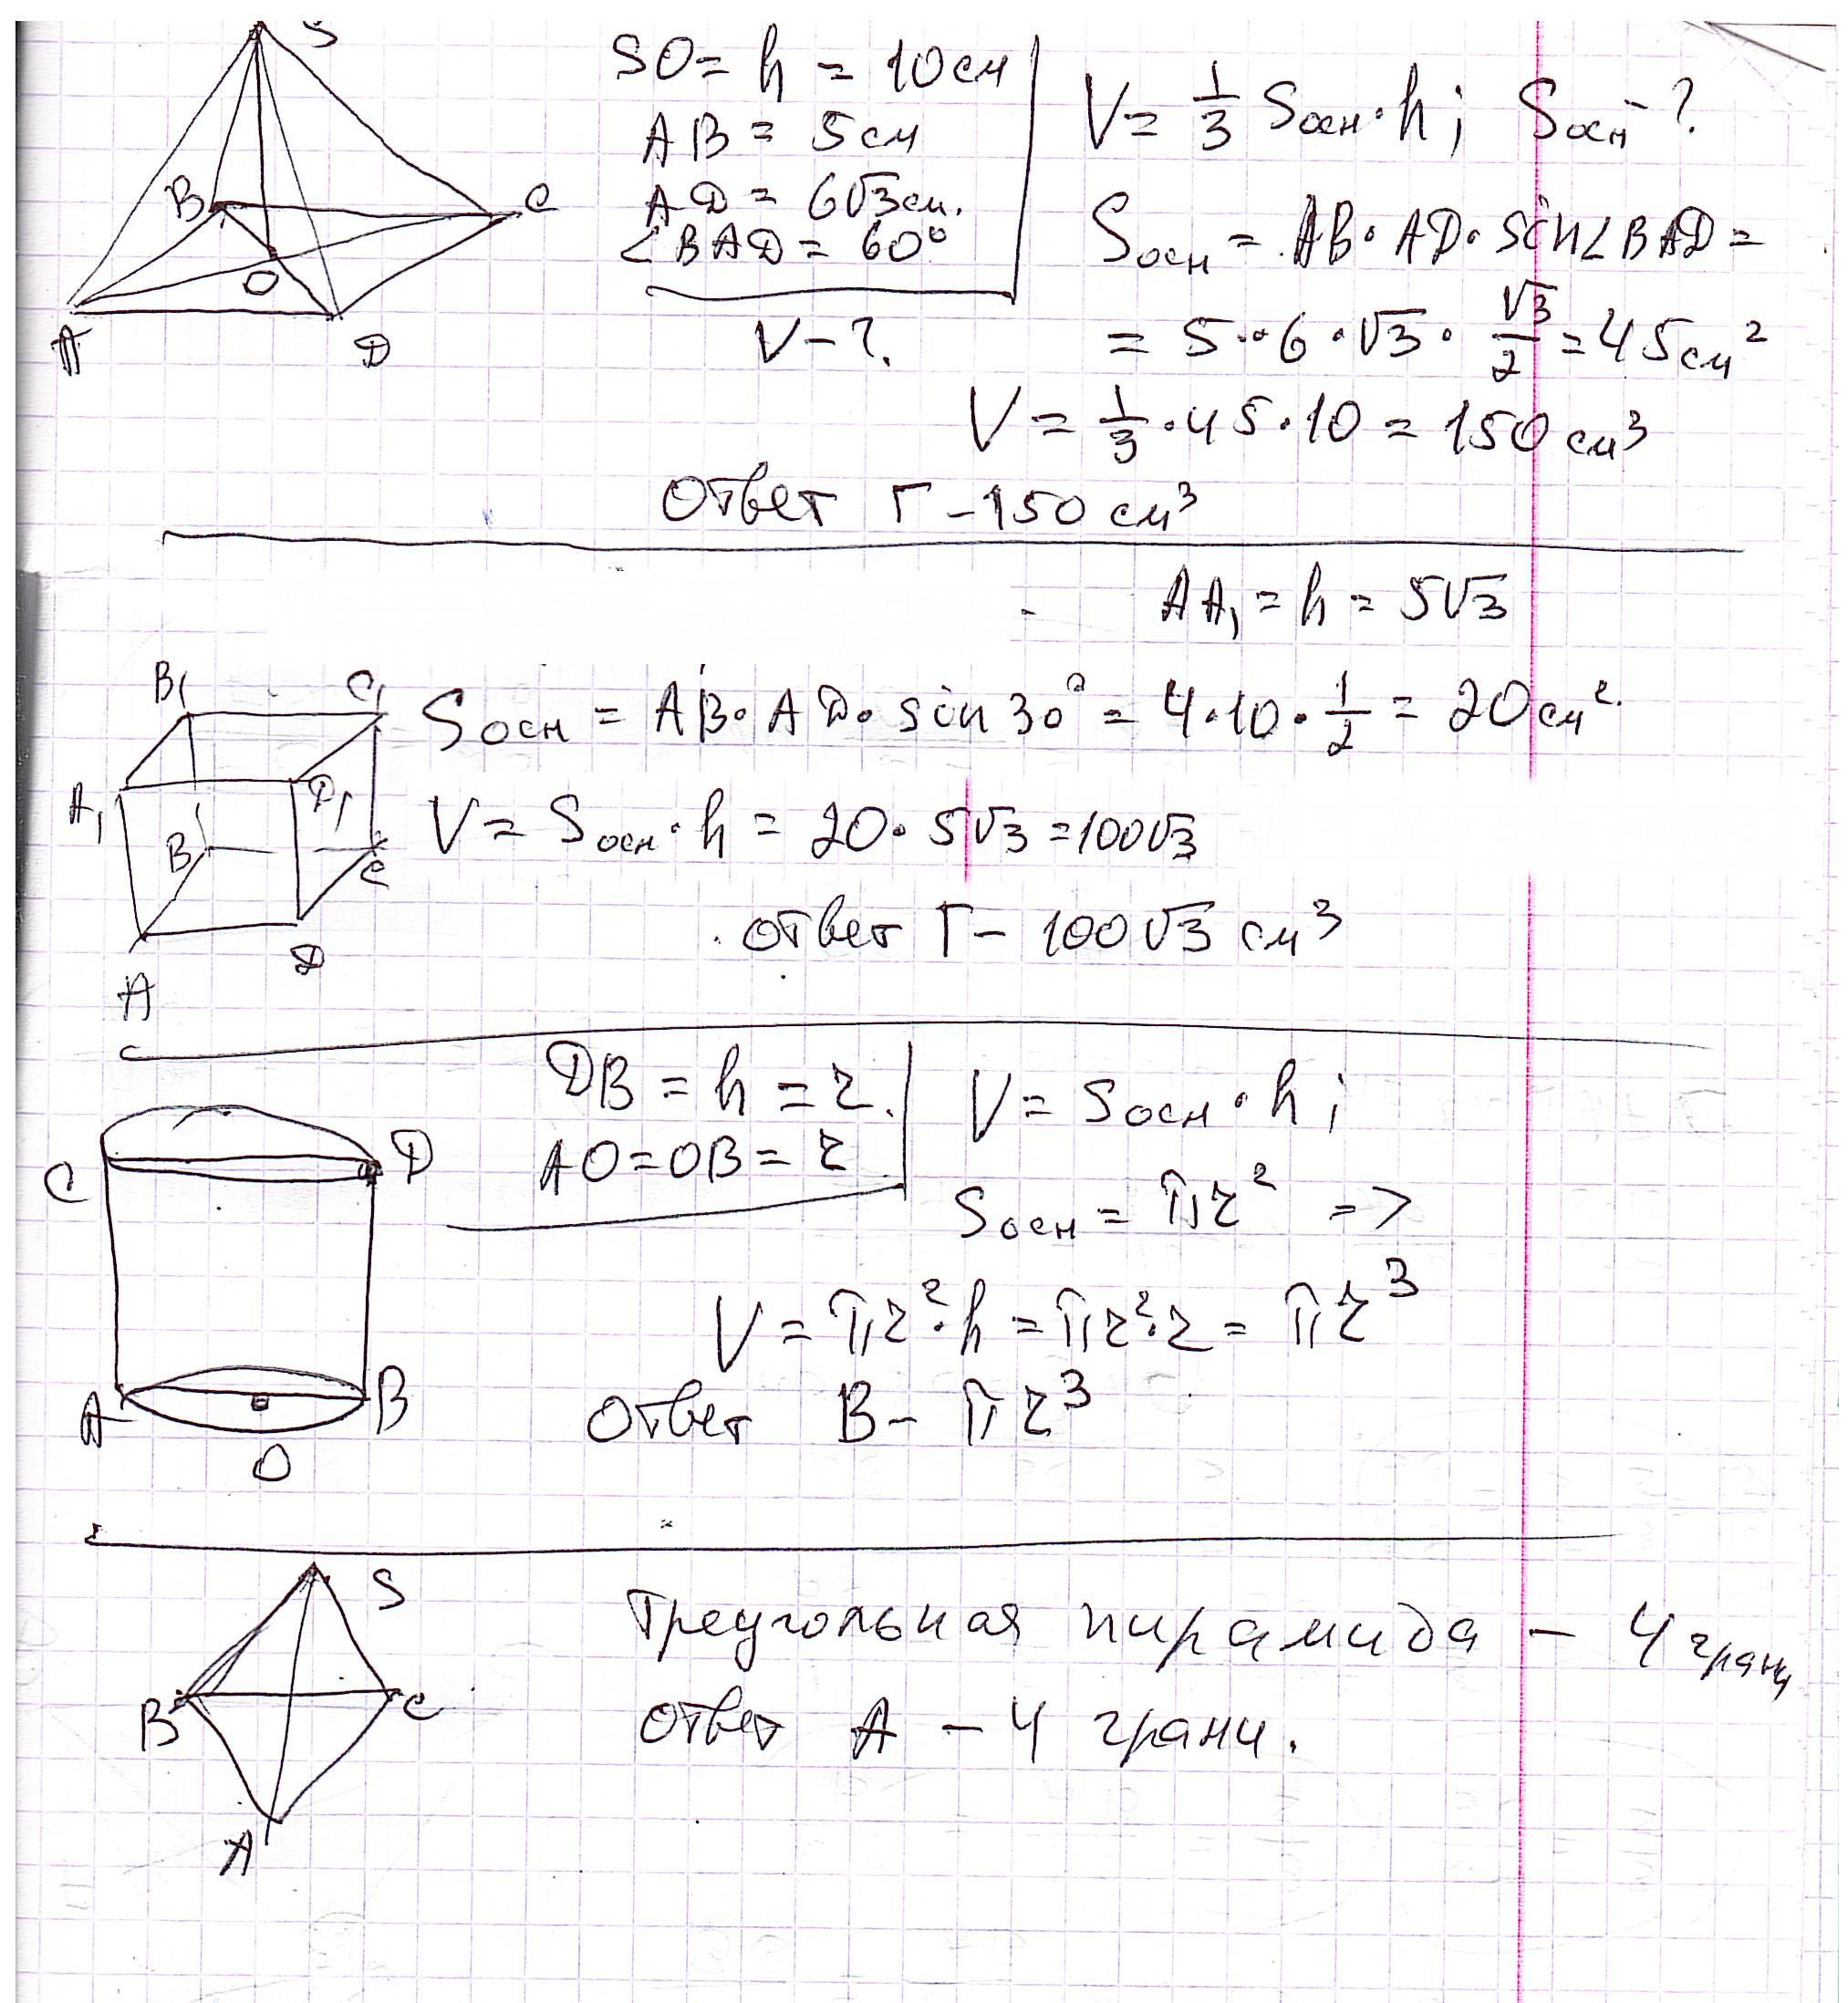 S
SO = h = 10 см
AB = 5 см
AD = 6√3 см.
∠BAD = 60°
V - ?.
V = 1/3 Sосн · h; Sосн - ?
Sосн = AB · AD · sin∠BAD =
= 5 · 6 · √3 · √3/2 = 45 см²
V = 1/3 · 45 · 10 = 150 см³
Ответ Г - 150 см³
B C
O
A D
AA₁ = h = 5√3
B₁ C₁
Sосн = AB · AD · sin 30° = 4 · 10 · 1/2 = 20 см².
A₁ D₁
V = Sосн · h = 20 · 5√3 = 100√3
B C
ответ Г - 100√3 см³
A D
DB = h = r.
AO = OB = r
V = Sосн · h;
Sосн = πr² =>
V = πr² · h = πr² · r = πr³
Ответ В - πr³
C D
A B
O
S
Треугольная пирамида - 4 грани
Ответ А - 4 грани.
B C
A